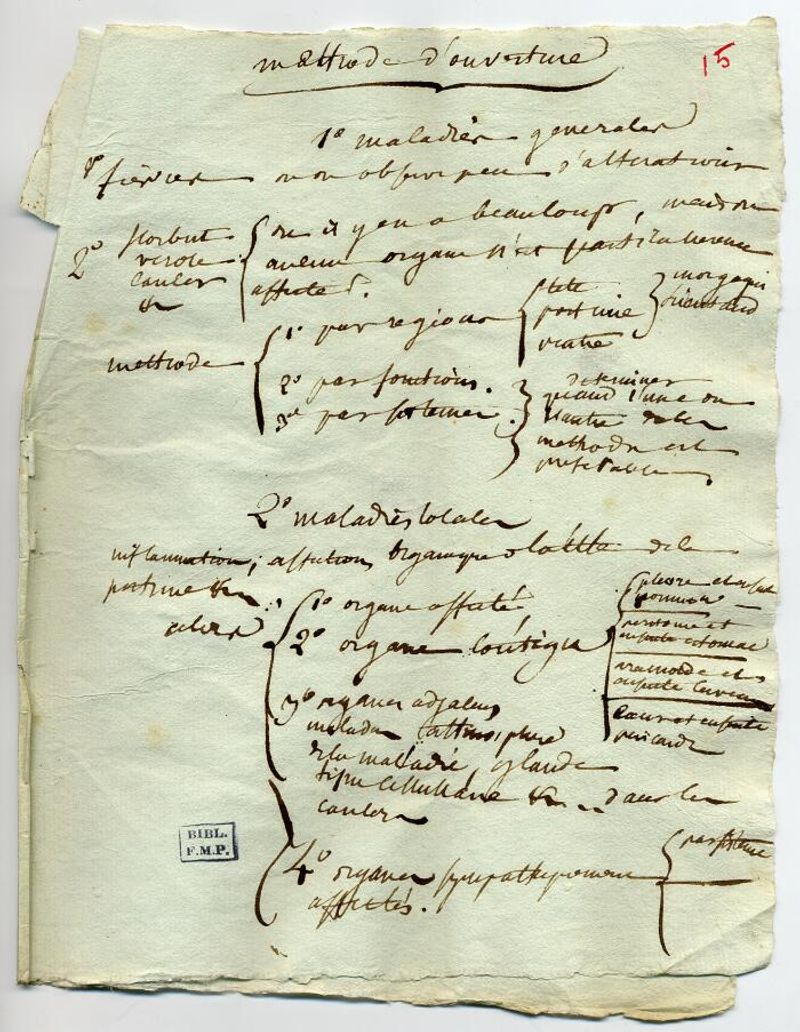 methode d'ouverture
15
1º maladies generales
1º fievres ou on observe peu d'alterations
2º
scorbut
verole
cancer
&c
ou il y en a beaucoup, mais ou
aucun organe n'est particulierement
affecté.
methode
1º par regions
tete
poitrine
ventre
morgagni
lieutaud
2º par fonctions.
3º par sistemes.
determiner
quand l'une ou
l'autre de ces
methodes est
preferable
2º maladies locales
inflammation, affections organiques de la tête de la
poitrine &c
alors
1º organe affecté
2º organe contigu
plevre et ensuite
poumon
peritoine et
ensuite estomac
arachnoide et
ensuite cerveau
coeur et ensuite
pericarde
3º organes adjacens
malades atmosphere
de la maladie, glandes
tissu cellulaire &c .. dans les
cancers
4º organes sympathiquement
affectés.
par sisteme
BIBL.
F.M.P.